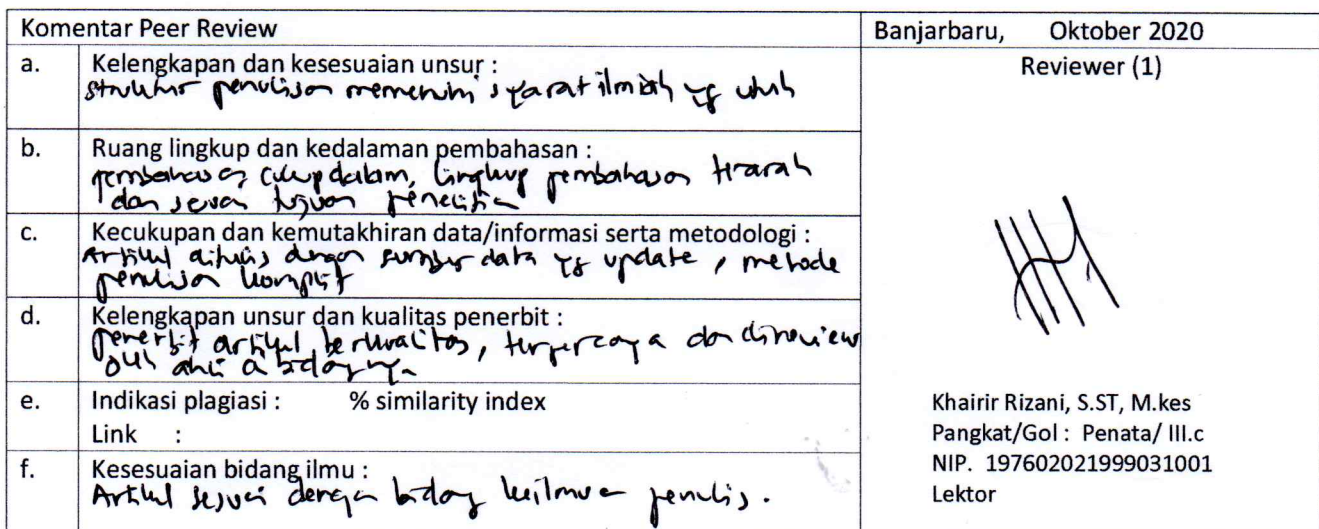 Komentar Peer Review
a. Kelengkapan dan kesesuaian unsur :
struktur penulisan memenuhi syarat ilmiah yg utuh
b. Ruang lingkup dan kedalaman pembahasan :
pembahasan cukup dalam, lingkup pembahasan terarah
dan sesuai tujuan penelitian
c. Kecukupan dan kemutakhiran data/informasi serta metodologi :
Artikel ditulis dengan sumber data yg update, metode
penulisan komplit
d. Kelengkapan unsur dan kualitas penerbit :
penerbit artikel berkualitas, terpercaya dan direview
oleh ahli di bidangnya
e. Indikasi plagiasi : % similarity index
Link :
f. Kesesuaian bidang ilmu :
Artikel sesuai dengan bidang keilmuan penulis.
Banjarbaru, Oktober 2020
Reviewer (1)
Khairir Rizani, S.ST, M.kes
Pangkat/Gol : Penata/ III.c
NIP. 197602021999031001
Lektor